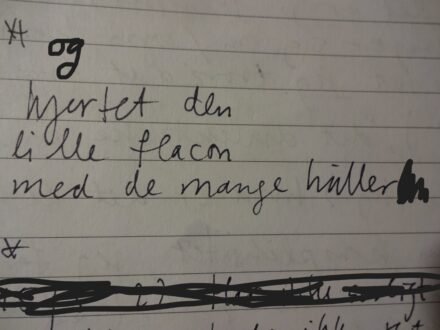 *
og
hjertet den
lille flacon
med de mange huller
*